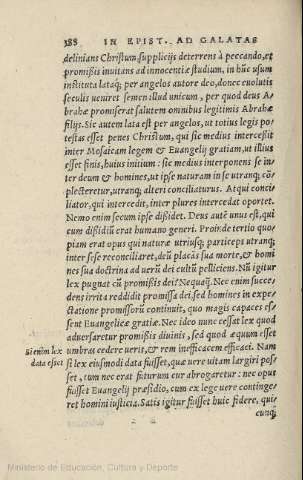 188 IN EPIST. AD GALATAS
delinians Christum, supplicijs deterrens à peccando, et
promißis inuitans ad innocentiæ studium, in hũc usum
instituta lataq́; per angelos autore deo, donec euolutis
seculis ueniret semen illud unicum, per quod deus A-
brahæ promiserat salutem omnibus legitimis Abrahæ
filijs. Sic autem lata est per angelos, ut totius legis po-
testas esset penes Christum, qui sic medius intercessit
inter Mosaicam legem & Euangelij gratiam, ut illius
esset finis, huius initium: sic medius interponens se in-
ter deum & homines, ut ipse naturam in se utranq; cõ-
plecteretur, utranq; alteri conciliaturus. Atqui conci-
liator, qui intercedit, inter plures intercedat oportet.
Nemo enim secum ipse dißidet. Deus autẽ unus est, qui
cum dißidiũ erat humano generi. Proinde tertio quo-
piam erat opus qui naturæ utriusq; particeps utranq;
inter sese reconciliaret, deũ placãs sua morte, & homi
nes sua doctrina ad uerũ dei cultũ pelliciens. Nũ igitur
lex pugnat cũ promißis dei? Nequaq̃. Nec enim succe-
dens irrita reddidit promissa dei, sed homines in expe-
ctatione promissorũ continuit, quo magis capaces es-
sent Euangelicæ gratiæ. Nec ideo nunc cessat lex quod
aduersaretur promißis diuinis, sed quod æquum esset
Si enim lex umbras cedere ueris, & rem inefficacem efficaci. Nam
data esset si lex eiusmodi data fuisset, quæ uere uitam largiri pos-
set, tum nec erat futurum cur abrogaretur: nec opus
fuisset Euangelij præsidio, cum ex lege uere continge-
ret homini iusticia. Satis igitur fuisset huic fidere, qui-
cunq;
Ministerio de Educación, Cultura y Deporte